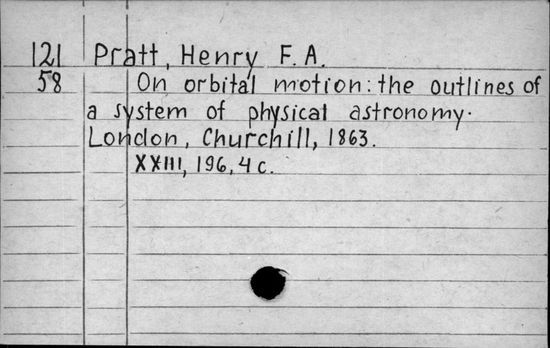 121 Pratt, Henry F. A.
58 On orbital motion: the outlines of
a system of physical astronomy.
London, Churchill, 1863.
XXIII, 196, 4 c.